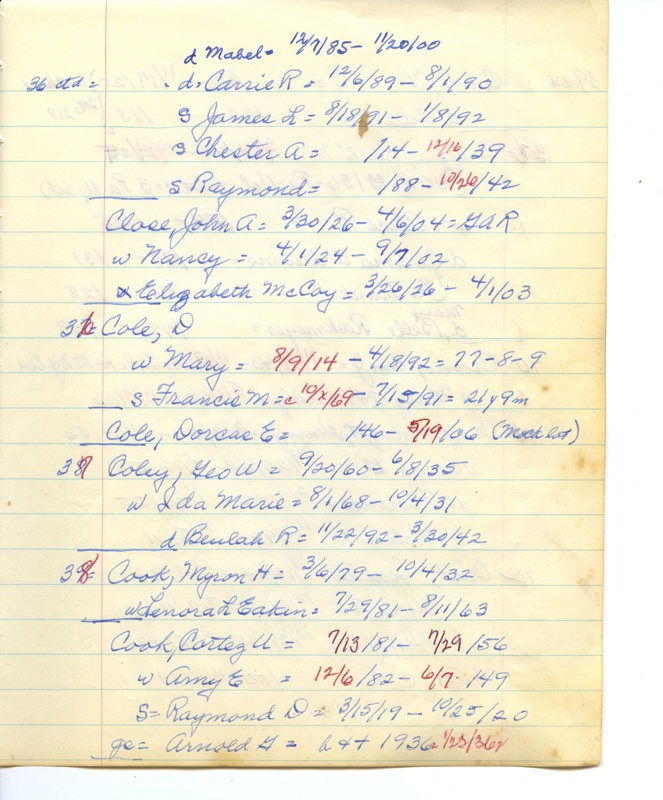 d Mabel = 12/7/85 - 11/20/00
36 ctd = d = Carrie R = 12/6/89 - 8/1/90
S James L = 8/18/91 - 1/8/92
S Chester A = /14 - 12/16/39
S Raymond = /88 - 10/26/42
Close, John A = 3/30/26 - 4/6/04 = GAR
w Nancy = 4/1/24 - 9/7/02
Elizabeth McCoy = 3/26/26 - 4/1/03
Cole, D
w Mary = 8/9/14 - 4/18/92 = 77-8-9
S Francis M = c 10/x/69 - 7/15/91 = 21y 9m
Cole, Dorcas E = /46 - 5/19/06 (Mock lot)
Coley, Geo W = 9/20/60 - 6/8/35
w Ida Marie = 8/1/68 - 10/4/31
d Beulah R = 11/22/92 - 3/30/42
Cook, Myron H = 3/6/79 - 10/4/32
w Lenorah Eakin = 7/29/81 - 8/11/63
Cook, Cortez U = 7/13/81 - 7/29/56
w Amy E = 12/6/82 - 6/7/49
S = Raymond D = 3/15/19 - 10/25/20
gs = Arnold G = b + + 1936 1/23/36